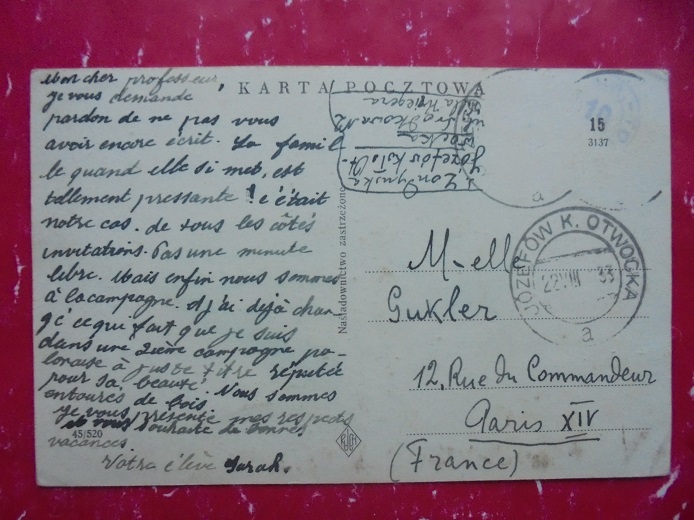 KARTA POCZTOWA
Mon cher professeur,
je vous demande
pardon de ne pas vous
avoir encore écrit. La famil
le quand elle si met, est
tellement pressante! c'était
notre cas. de tous les côtés
invitations. Pas une minute
libre. Mais enfin nous sommes
à la campagne. J'ai déjà chan-
gé ce qui fait que je suis
dans une 2ième campagne po-
lonaise à juste titre réputée
pour sa beauté. Nous sommes
entourés de bois.
je vous présente mes respects
et vous souhaite de bonnes
vacances
Votre élève Sarah.
45/520
Naśladownictwo zastrzeżone
Londyńska
Józefów k/o Otw-
15
3137
JÓZEFÓW K. OTWOCKA
22 VIII 33
a
a
M-elle
Gukler
12, Rue du Commandeur
Paris XIV
(France)